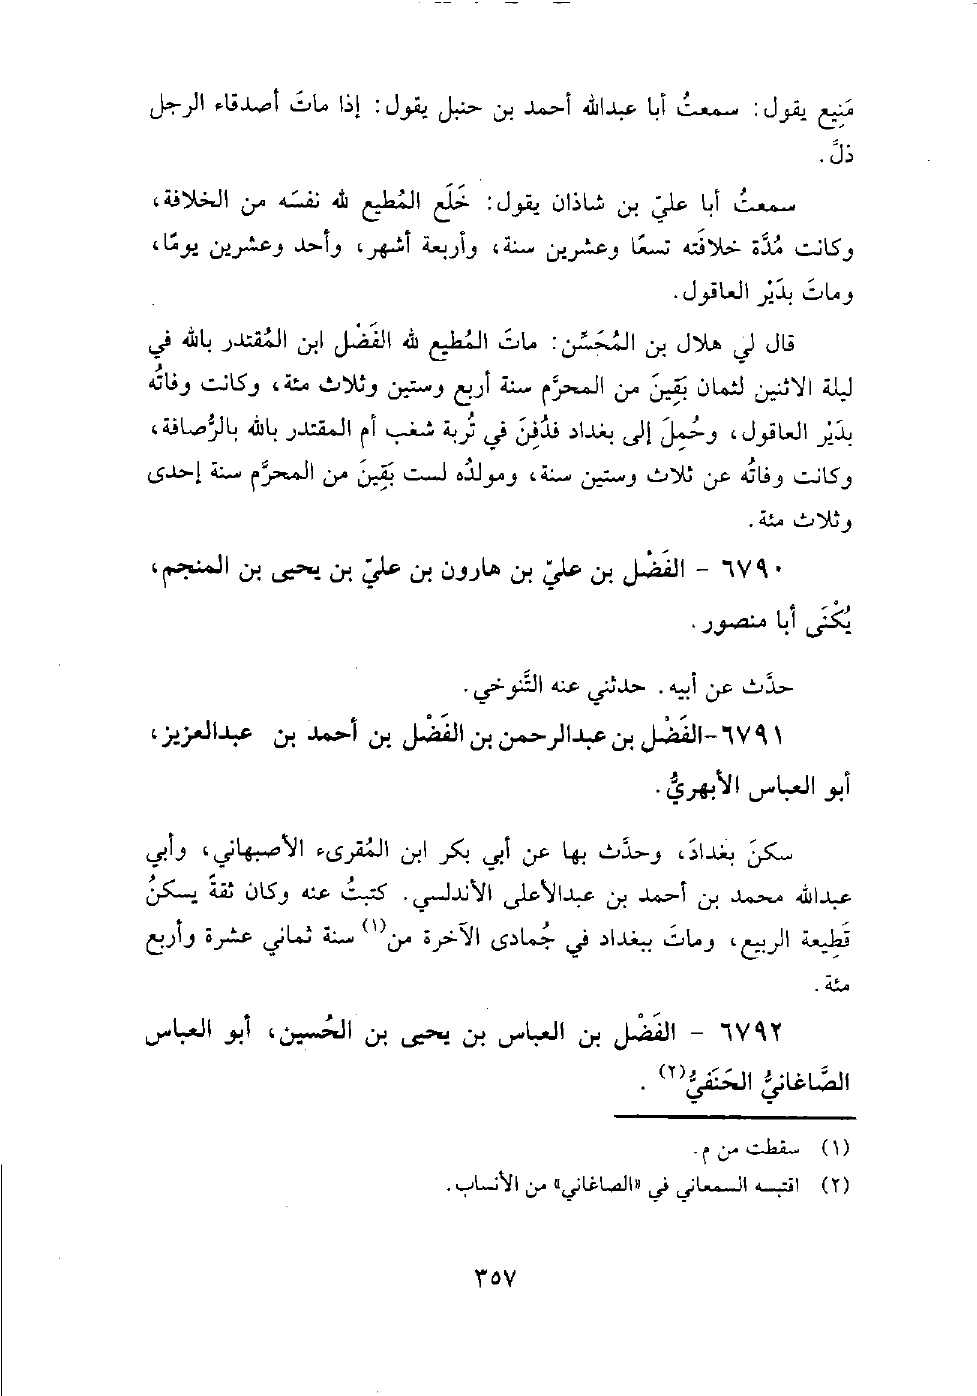 مَنِيع يقول: سمعتُ أبا عبدالله أحمد بن حنبل يقول: إذا ماتَ أصدقاء الرجل
ذلَّ.
سمعتُ أبا عليّ بن شاذان يقول: خَلَع المُطيع لله نفسَه من الخلافة،
وكانت مُدَّة خلافَته تسعًا وعشرين سنة، وأربعة أشهر، وأحد وعشرين يومًا،
وماتَ بدَيْر العاقول.
قال لي هلال بن المُحَسِّن: ماتَ المُطيع لله الفَضْل ابن المُقتدر بالله في
ليلة الاثنين لثمان بَقِينَ من المحرَّم سنة أربع وستين وثلاث مئة، وكانت وفاتُه
بدَيْر العاقول، وحُمِلَ إلى بغداد فدُفِنَ في تُربة شغب أم المقتدر بالله بالرُّصافة،
وكانت وفاتُه عن ثلاث وستين سنة، ومولدُه لست بَقِينَ من المحرَّم سنة إحدى
وثلاث مئة.
٦٧٩٠ - الفَضْل بن عليّ بن هارون بن عليّ بن يحيى بن المنجم،
يُكْنَى أبا منصور.
حدَّث عن أبيه. حدثني عنه التَّنوخي.
٦٧٩١-الفَضْل بن عبدالرحمن بن الفَضْل بن أحمد بن عبدالعزيز،
أبو العباس الأبهريُّ.
سكنَ بغدادَ، وحدَّث بها عن أبي بكر ابن المُقرىء الأصبهاني، وأبي
عبدالله محمد بن أحمد بن عبدالأعلى الأندلسي. كتبتُ عنه وكان ثقةً يسكنُ
قَطِيعة الربيع، وماتَ ببغداد في جُمادى الآخرة من(١) سنة ثماني عشرة وأربع
مئة.
٦٧٩٢ - الفَضْل بن العباس بن يحيى بن الحُسين، أبو العباس
الصَّاغانيُّ الحَنَفيُّ(٢).
(١) سقطت من م.
(٢) اقتبسه السمعاني في «الصاغاني» من الأنساب.
٣٥٧